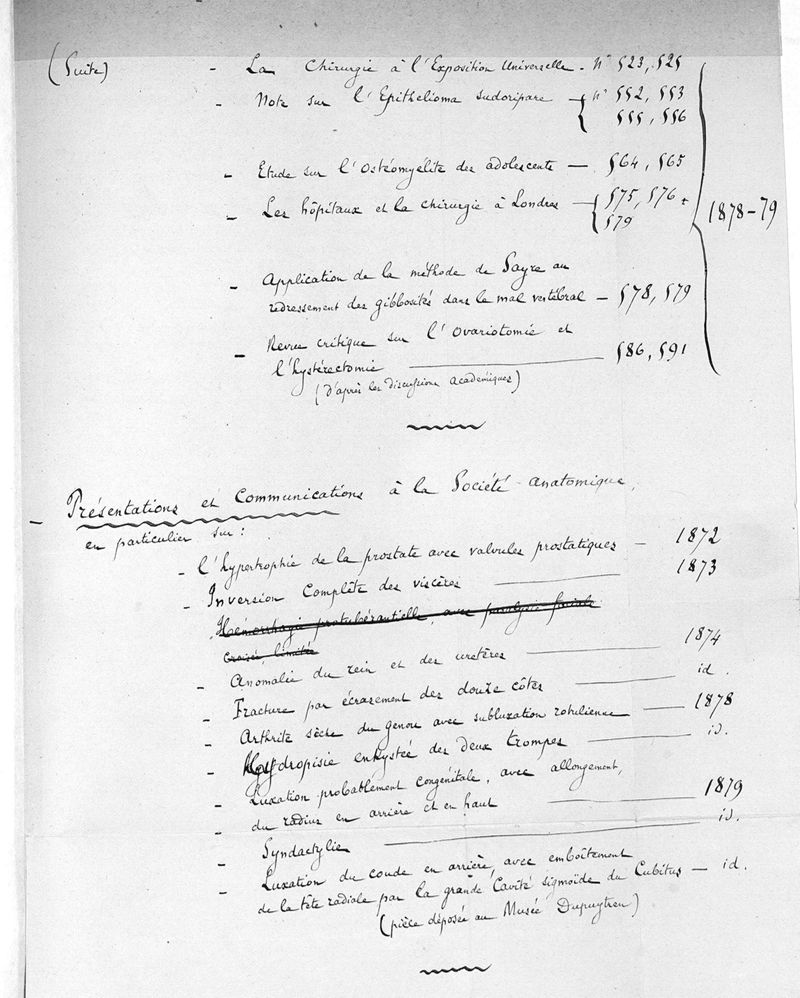 (Suite) - La Chirurgie à l'Exposition Universelle - N° 523, 525
- Note sur l'Epithelioma sudoripare - { n° 552, 553
555, 556
- Etude sur l'Ostéomyélite des adolescents — 564, 565
- Les hôpitaux et la chirurgie à Londres - { 575, 576 +
579
1878-79
- Application de la méthode de Sayre au
redressement des gibbosités dans le mal vertébral - 578, 579
- Revue critique sur l'Ovariotomie et
l'hystérectomie — 586, 591
(d'après les discussions académiques)
- Présentations et Communications à la Société anatomique,
en particulier sur :
- l'hypertrophie de la prostate avec valvules prostatiques - 1872
- Inversion Complète des viscères — 1873
Hémorrhagie protubérantielle, avec paralysie faciale
croisée, limitée
- Anomalie du rein et des uretères — 1874
- Fracture par écrasement des douze côtes — id.
- Arthrite sèche du genou avec subluxation rotulienne — 1878
- Hydropisie enkystée des deux trompes — id.
- Luxation probablement congénitale, avec allongement,
- du radius en arrière et en haut — 1879
- Syndactylie — id.
- Luxation du coude en arrière, avec emboîtement
de la tête radiale par la grande Cavité sigmoïde du Cubitus - id.
(pièce déposée au Musée Dupuytren)